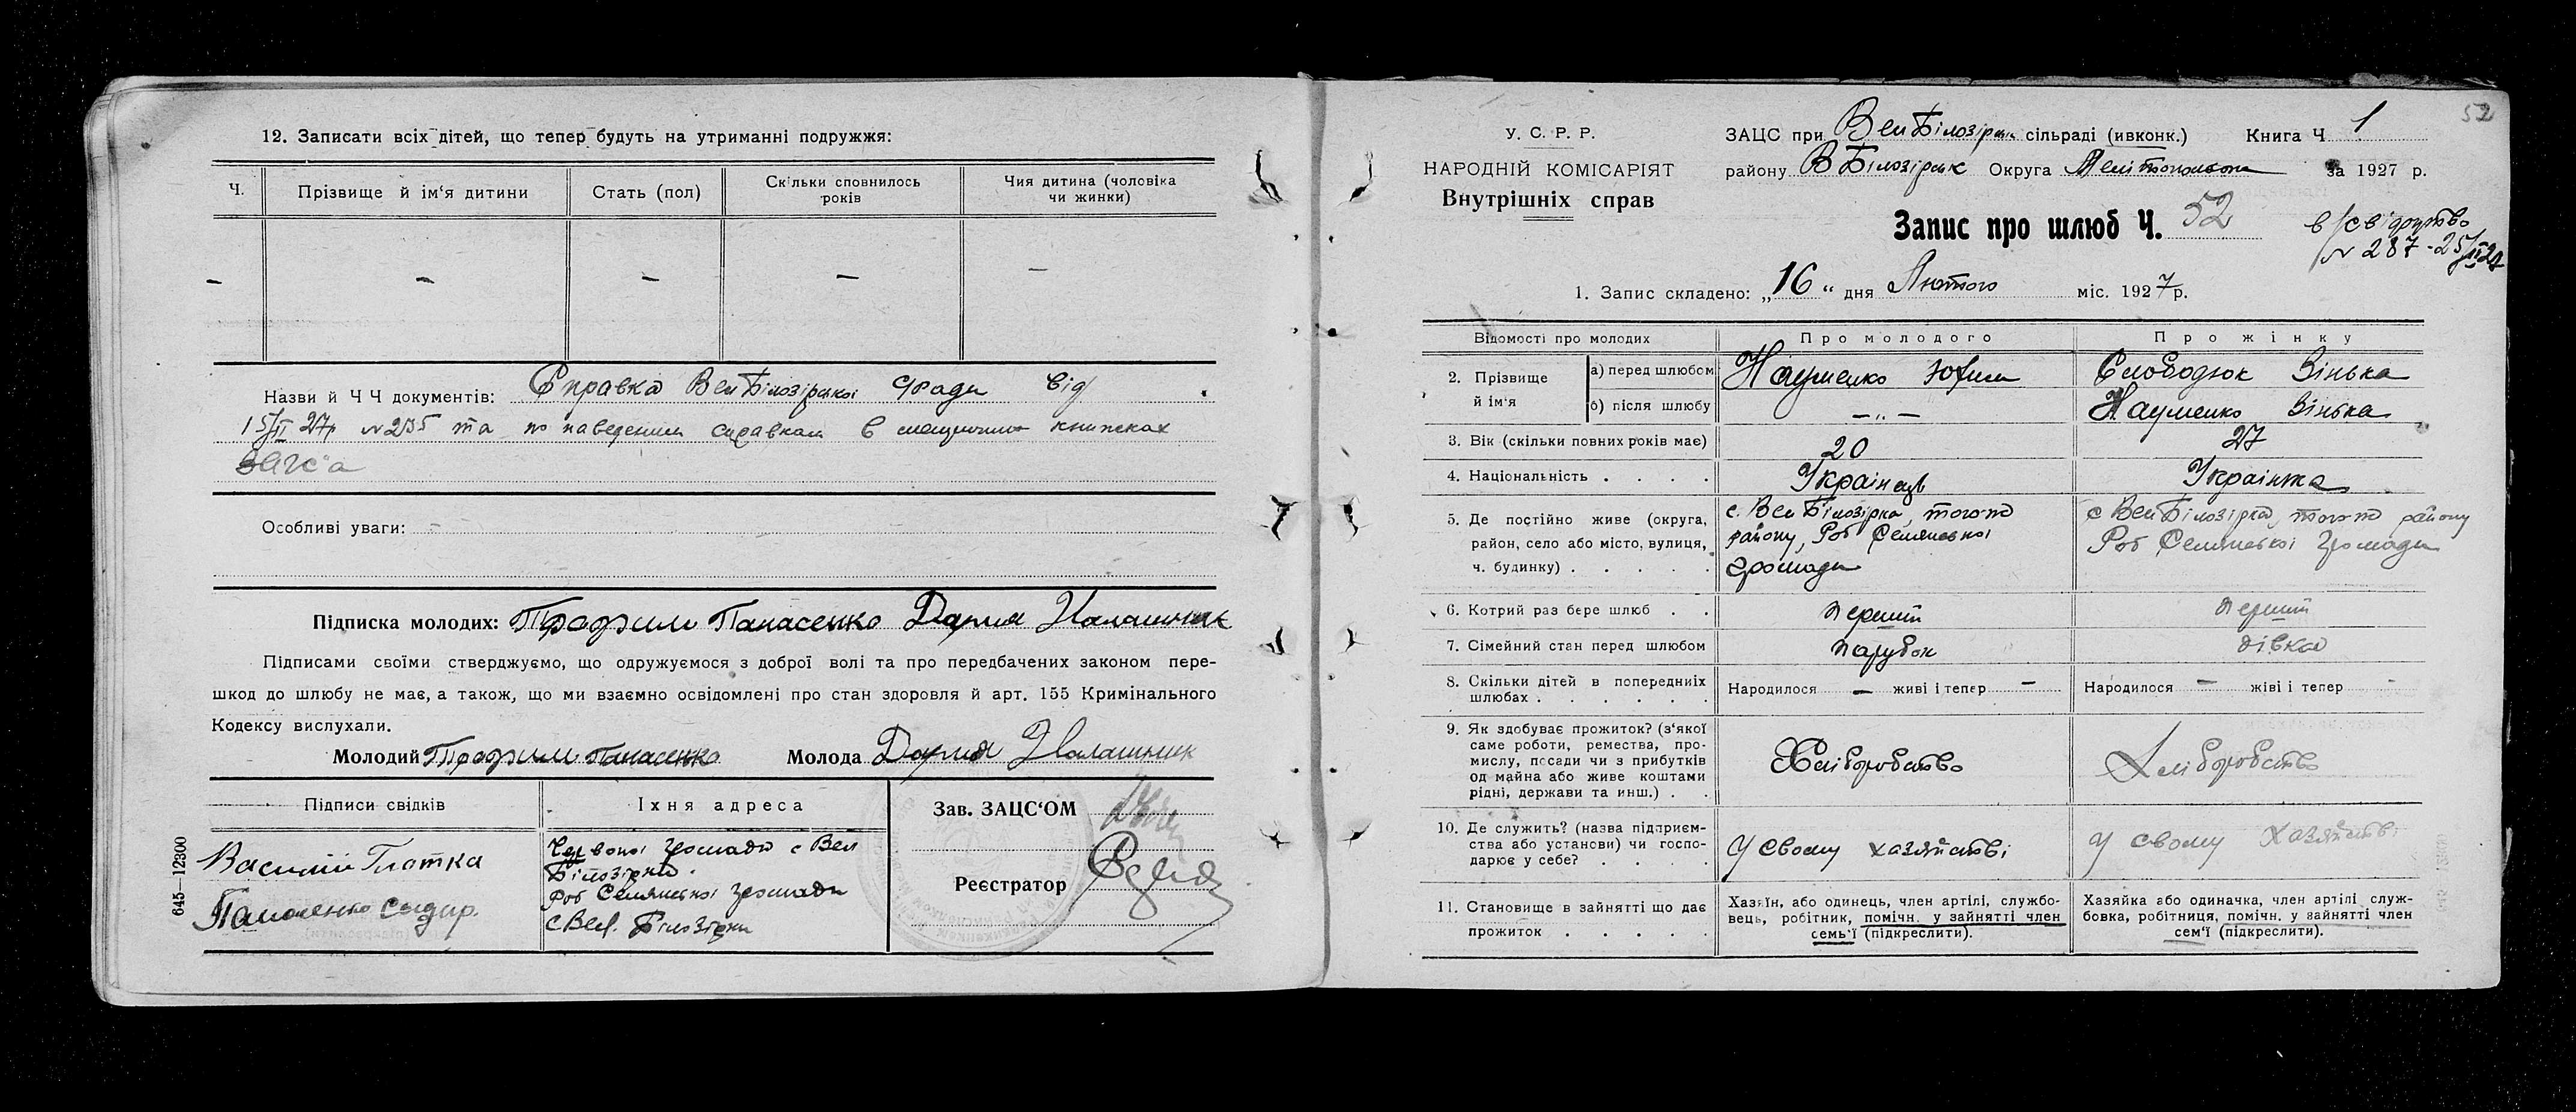 12. Записати всіх дітей, що тепер будуть на утриманні подружжя:
Ч.
Прізвище й ім‘я дитини
Стать (пол)
Скільки сповнилось років
Чия дитина (чоловіка чи жинки)
— — — — —
Назви й Ч Ч документів: Справка Вел Білозірської Сради від
15/II 27р №235 та по наведеним справкам в книжках
ЗАГС'а
Особливі уваги: —
Підписка молодих: Трофим Панасенко Дария
Підписами своїми стверджуємо, що одружуємося з доброї волі та про передбачених законом пере-
шкод до шлюбу не має, а також, що ми взаємно освідомлені про стан здоровля й арт. 155 Кримінального
Кодексу вислухали.
Молодий Трофим Панасенко Молода Дария
Підписи свідків
Їхня адреса
Василий Глотка
Червоної громади с Вел
Білозірки.
Сидир.
Роб Селянської громади
с Вел. Білозірки
Зав. ЗАЦС‘ОМ
Реєстратор
645—12300
52
У. С. Р. Р.
НАРОДНІЙ КОМІСАРІЯТ
Внутрішніх справ
ЗАЦС при Вел Білозірськ сільраді (ивконк.) Книга Ч 1
району В Білозірськ Округа Мелітопольска за 1927 р.
Запис про шлюб Ч. 52
в/свідоцтво
№ 287 - 25/II 27
1. Запис складено: „16“ дня Лютого міс. 1927 р.
Відомості про молодих
Про молодого
Про жінку
2. Прізвище й ім‘я
а) перед шлюбом
Науменко Юхим
Слободюк Зінька
б) після шлюбу
— „ —
Науменко Зінька
3. Вік (скільки повних років має)
20
27
4. Національність . . . .
Українець
Українка
5. Де постійно живе (округа,
район, село або місто, вулиця,
ч. будинку) . . . . .
с. Вел Білозірка, того-ж
району, Роб Селянської
громади
с Вел Білозірка, того-ж району
Роб Селянської Громади
6. Котрий раз бере шлюб . .
перший
перший
7. Сімейний стан перед шлюбом
парубок
дівка
8. Скільки дітей в попередниіх
шлюбах . . . . . .
Народилося — живі і тепер —
Народилося — жіві і тепер -
9. Як здобуває прожиток? (з‘якої
саме роботи, ремества, про-
мислу, посади чи з прибутків
од майна або живе коштами
рідні, держави та инш.) . .
Хліборобство
Хліборобство
10. Де служить? (назва підприєм-
ства або установи) чи госпо-
дарює у себе? . . . .
У свому хазяйстві
У свому хазяйстві
11. Становище в зайнятті що дає
прожиток . . . . .
Хазяїн, або одинець, член артілі, службо-
вець, робітник, помічн. у зайнятті член
семь‘ї (підкреслити).
Хазяйка або одиначка, член артілі служ-
бовка, робітниця, помічн. у зайнятті член
сем‘ї (підкреслити).